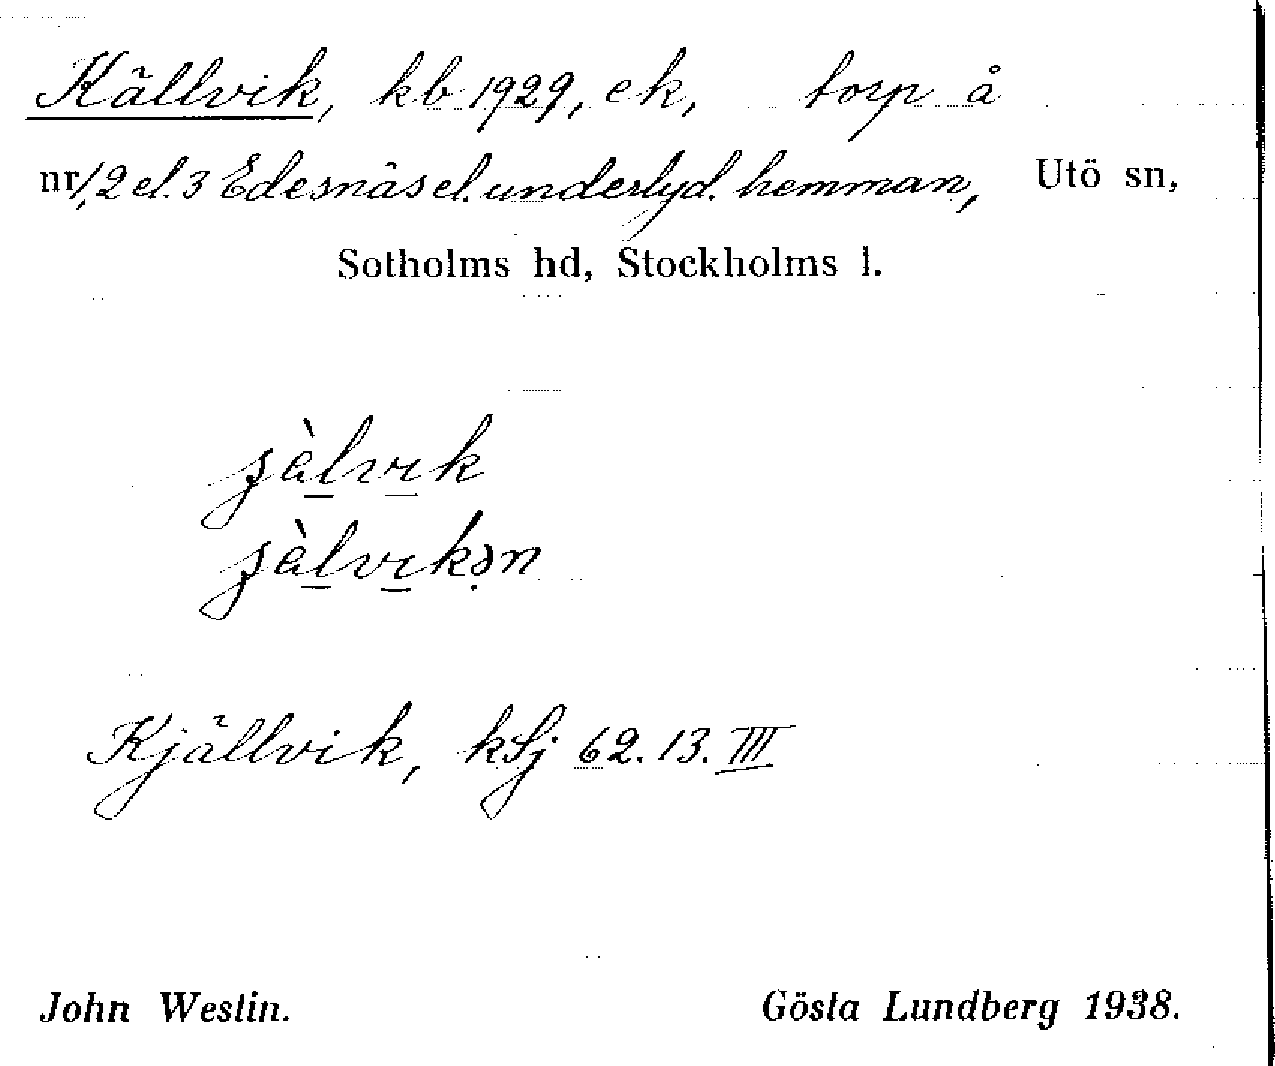 Källvik, kb 1929, ek, torp å
nr 1, 2 el. 3 Edesnäs el. underlyd. hemman, Utö sn,
Sotholms hd, Stockholms l.
Kjällvik, kSj 62. 13. III
John Westin. Gösta Lundberg 1938.